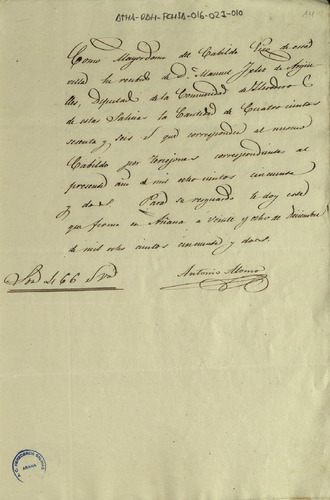 ATHA-DAH-FCHSA-016-022-010
Como Mayordomo del Cabildo de esta
villa he recibido de D. Manuel de
Diputado de la Comunidad de
de estas Salinas la Cantidad de Cuatro cientos
sesenta y seis que corresponden al mismo
Cabildo por correspondientes al
presente año de mil ocho cientos cincuenta
y dos. Para su resguardo le doy este
que firmo en Añana a veinte y ocho de Diciembre
de mil ocho cientos cincuenta y dos.
Antonio Alonso
Son 466
AÑANA